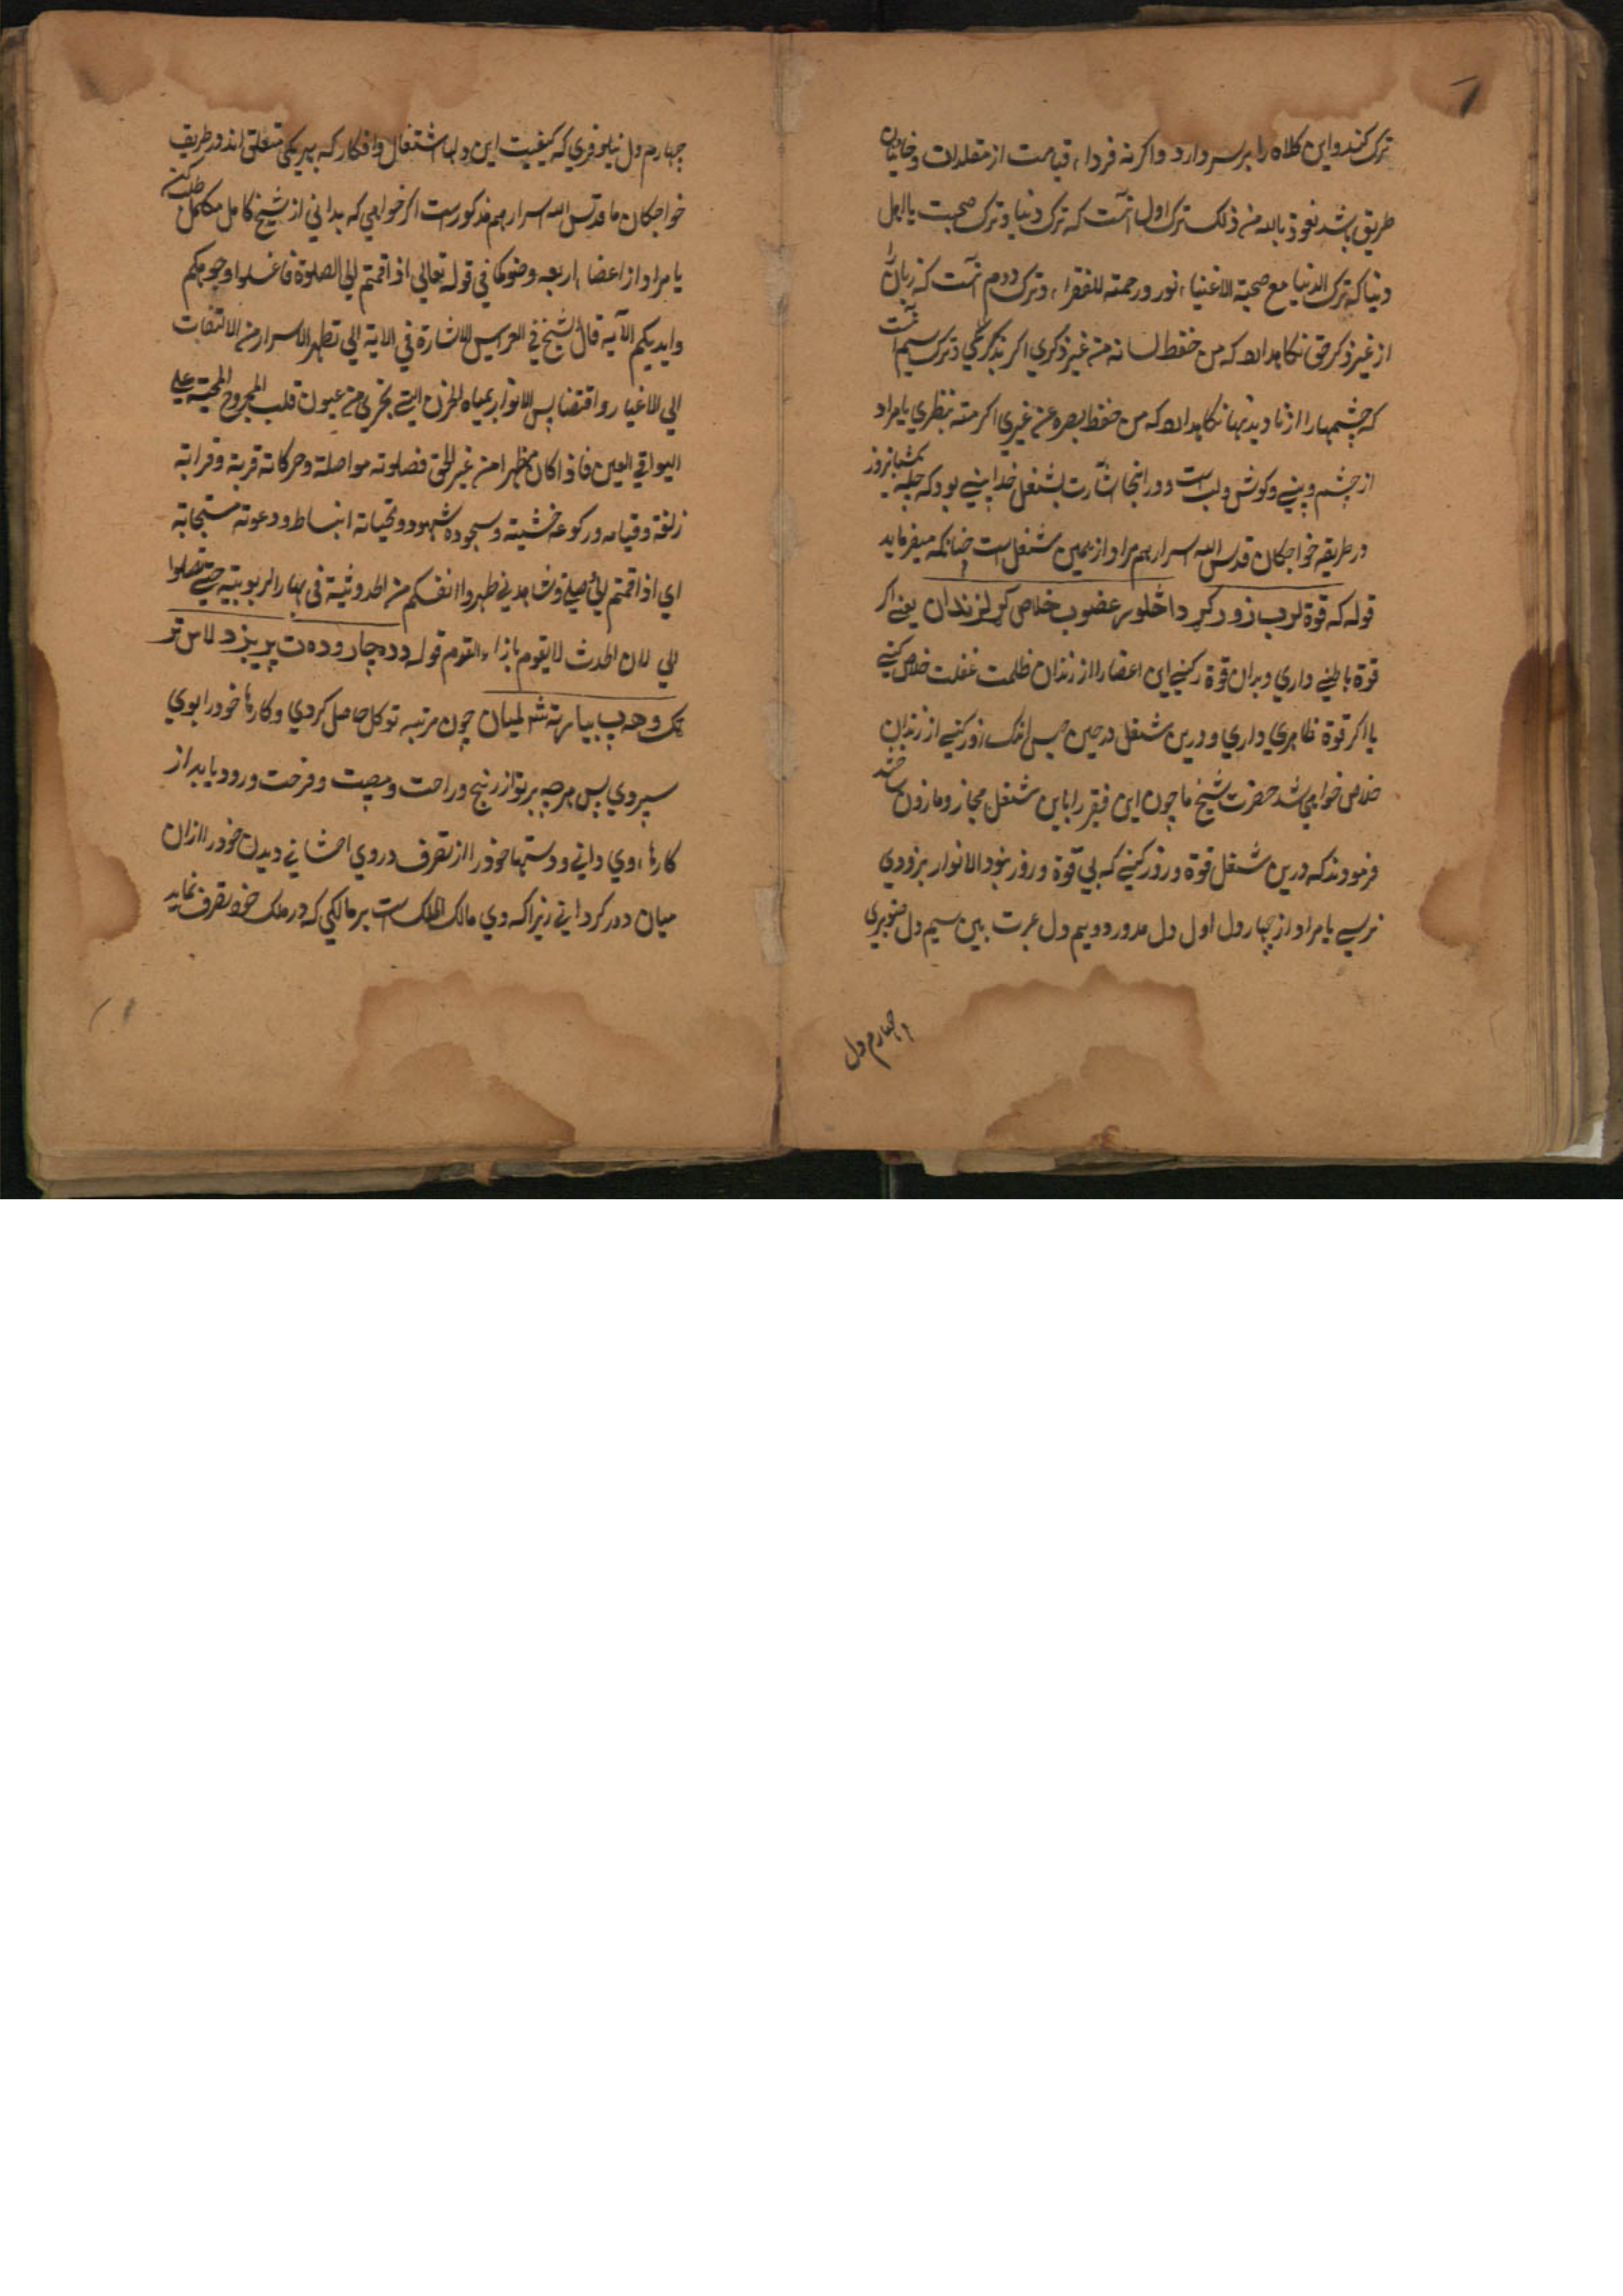 ترک کند و این کلاه را بر سر دارد و اگر نه فرداء قیامت از مقلدان و خاینان
طریق باشد نعوذ بالله من ذلک ترک اول آنست که ترک دنیا و ترک صحبت با اهل
دنیا که ترک الدنیا مع صحبة الاغنیاء نور ورحمته للفقراء و ترک دوم آنست که زبان
از غیر ذکر حق نگاهدارد که من حفظ لسانه من غیر ذکری اکرمته بذکری و ترک سیم آنست
که چشمها را از نادیدنیها نگاهدارد که من حفظ بصره عن غیری اکرمته بنظری یا مراد
از چشم و بینی و گوش و لب است و در اینجا اشارت بشغل خدابینی بود که چله یکشبانروز
در طریقه خواجکان قدس الله اسرارهم مراد از همین شغل است چنانکه میفرماید
قوله که قوة لرب زور کړ دا څلور عضوب خلاص کړ لزندان یعنی اگر
قوة باطنی داری و بدان قوة کنی این اعضا را از زندان ظلمت غفلت خلاص کنی
یا اگر قوة ظاهری داری و درین شغل در حین حبس اندک زور کنی از زندان
خلاص خواهی شد حضرت شیخ ما چون این فقیر را باین شغل مجاز و ماذون ساختند
فرمودند که درین شغل قوة و زور کنی که بی قوة و زور بنور الانوار بزودی
نرسی یا مراد از چهار دل اول دل مدور دویم دل عبرت بین سیم دل صنوبری
و چهارم دل
چهارم دل نیلوفری که کیفیت این دلها اشتغال و افکار که بهر یکی متعلق اند در طریق
خواجکان ما قدس الله اسرارهم مذکور است اگر خواهی که بدانی از شیخ کامل مکمل طلب کن
یا مراد از اعضاء اربعه وضو کما فی قوله تعالی اذا قمتم الی الصلوة فاغسلوا وجوهکم
وایدیکم الآیه قال الشیخ فی العرایس الاشارة فی الآیة الی تطهر الاسرار من الالتفات
الی الاغیار و اقتضابس الانوار بمیاه الحزن التی تجری من عیون قلب المجروح المحبة علی
الیواقی العین فاذا کان مطهرا من غیر الحق فصلوته مواصلة وحرکاته قربة وقراته
زلفة وقیامه ورکوعه خشیته وسجوده شهود وتحیاته انبساط ودعوته مستجابة
ای اذا قمتم الی وصلتی وشاهدنی طهروا انفسکم من الحدوثیة فی بهار الربوبیة حتی تصلوا
الی لان الحدث لا یقوم بازاء القدم قوله دده چار وده ت پریږد لاس تر
تک و چپ بیا رته شه لمیان چون مرتبه توکل حاصل کردی و کارها خود را بوی
سپردی پس هرچه بر تو از رنج و راحت و مصیبت و فرحت ورود یابد از
کارهاء وی دانی و دستها خود را از تصرف در وی افشانی و دیدن خود را از ان
میان دور گردانی زیرا که وی مالک الملک است هر مالکی که در ملک خود تصرف نماید